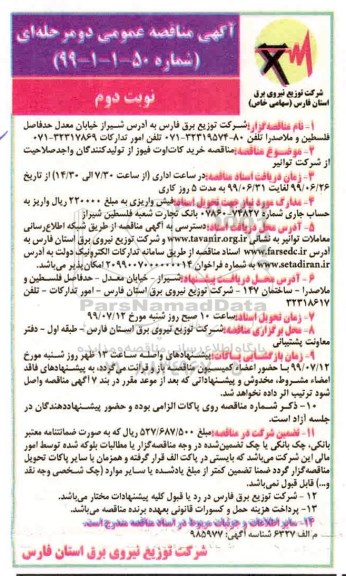 آگهی مناقصه عمومی دو مرحله‌ای
(شماره ۵۰-۱-۱-۹۹)
نوبت دوم
شرکت توزیع نیروی برق
استان فارس (سهامی خاص)
۱- نام مناقصه‌گزار: شرکت توزیع برق فارس به آدرس شیراز خیابان معدل حدفاصل
فلسطین و ملاصدرا تلفن ۸۰-۳۲۳۱۹۵۷۴-۰۷۱ تلفن امور تدارکات ۳۲۳۱۷۸۶۹-۰۷۱
۲- موضوع مناقصه: مناقصه خرید کات‌اوت فیوز از تولیدکنندگان واجدصلاحیت
از شرکت توانیر
۳- زمان دریافت اسناد مناقصه: در ساعت اداری (از ساعت ۷/۳۰ الی ۱۴/۳۰) از تاریخ
۹۹/۰۶/۲۶ لغایت ۹۹/۰۶/۳۱ به مدت ۵ روز کاری
۴- مدارک مورد نیاز جهت تحویل اسناد: فیش واریزی به مبلغ ۲۲۰۰۰۰ ریال واریز به
حساب جاری شماره ۷۳۸۳۷-۰۷۸۶۰ بانک تجارت شعبه فلسطین شیراز
۵- آدرس محل دریافت اسناد: دسترسی به آگهی مناقصه از طریق شبکه اطلاع‌رسانی
معاملات توانیر به نشانی www.tavanir.org.ir و شرکت توزیع نیروی برق استان فارس به
آدرس www.farsedc.ir اسناد مناقصه از طریق سامانه تدارکات الکترونیک دولت به آدرس
www.setadiran.ir به شماره فراخوان ۲۰۹۹۰۰۷۰۰۰۰۰۰۰۱۴ امکان‌پذیر می‌باشد.
۶- آدرس محل دریافت پیشنهاد: شیراز - خیابان معدل - حدفاصل فلسطین و
ملاصدرا - ساختمان ۱۴۷ - شرکت توزیع نیروی برق استان فارس - امور تدارکات - تلفن
۳۲۳۱۸۶۱۷
۷- زمان تحویل اسناد: ساعت ۱۰ صبح روز شنبه مورخ ۹۹/۰۷/۱۲
۸- محل برگزاری مناقصه: شرکت توزیع نیروی برق استان فارس - طبقه اول - دفتر
معاونت پشتیبانی
۹- زمان بازگشایی پاکات: پیشنهادهای واصله ساعت ۱۳ ظهر روز شنبه مورخ
۹۹/۰۷/۱۲ با حضور اعضاء کمیسیون مناقصه باز و قرائت می‌گردد، به پیشنهادهای فاقد
امضاء مشروط، مخدوش و پیشنهاداتی که بعد از موعد مقرر در بند ۷ آگهی مناقصه واصل
شود ترتیب اثر داده نخواهد شد.
۱۰- ذکر شماره مناقصه روی پاکات الزامی بوده و حضور پیشنهاددهندگان در
جلسه آزاد است.
۱۱- تضمین شرکت در مناقصه: مبلغ ۵۲۷/۶۸۷/۵۰۰ ریال که به صورت ضمانتنامه معتبر
بانکی، چک بانکی یا چک تضمین‌شده در وجه مناقصه‌گزار یا مطالبات بلوکه شده توسط امور
مالی این شرکت می‌باشد که بایستی در پاکت الف قرار گرفته و همزمان با سایر پاکات تحویل
مناقصه‌گزار گردد ضمنا تضمین کمتر از مبلغ یادشده یا سایر موارد (چک شخصی وجه نقد
و...) قابل قبول نمی‌باشد.
۱۲- شرکت توزیع برق فارس در رد یا قبول کلیه پیشنهادات مختار می‌باشد.
۱۳- پرداخت هزینه حمل و کسورات قانونی بعهده برنده مناقصه می‌باشد.
۱۴- سایر اطلاعات و جزئیات مربوط در اسناد مناقصه مندرج است.
م الف ۶۳۲۷ شناسه آگهی: ۹۸۵۹۷۷
شرکت توزیع نیروی برق استان فارس